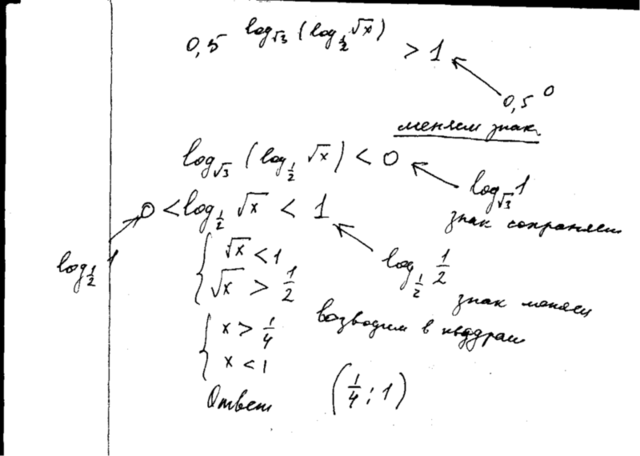 0,5^{log_{√3}(log_{1/2} √x)} > 1
0,5^0
меняем знак.
log_{√3}(log_{1/2} √x) < 0
log_{√3} 1
знак сохраняем
0 < log_{1/2} √x < 1
log_{1/2} 1
log_{1/2} 1/2
знак меняем
{ √x < 1
√x > 1/2
возводим в квадрат
{ x > 1/4
x < 1
Ответ (1/4; 1)